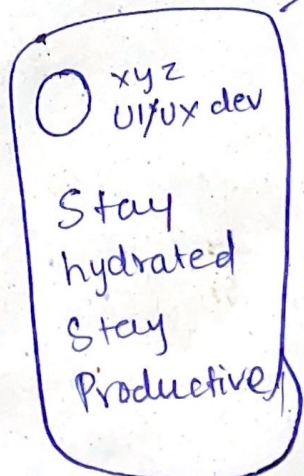 xyz
UI/UX dev
Stay
hydrated
Stay
Productive